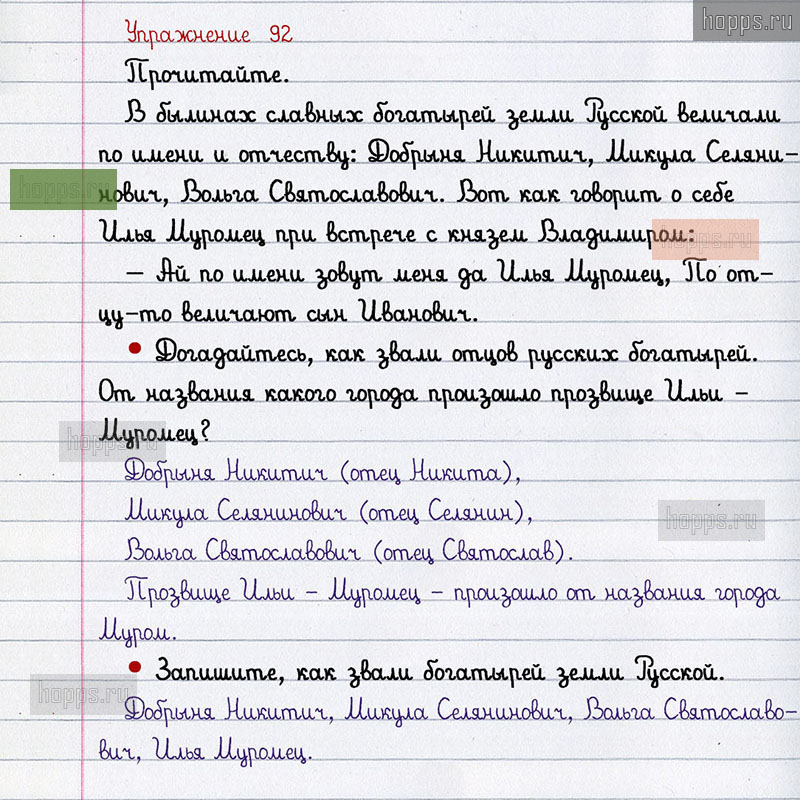 Упражнение 92
hopps.ru
Прочитайте.
В былинах славных богатырей земли Русской величали
по имени и отчеству: Добрыня Никитич, Микула Селяни-
hopps.ru
нович, Вольга Святославович. Вот как говорит о себе
Илья Муромец при встрече с князем Владимиром:
hopps.ru
– Ай по имени зовут меня да Илья Муромец, По от-
цу-то величают сын Иванович.
• Догадайтесь, как звали отцов русских богатырей.
От названия какого города произошло прозвище Ильи –
Муромец?
hopps.ru
Добрыня Никитич (отец Никита),
Микула Селянинович (отец Селянин),
hopps.ru
Вольга Святославович (отец Святослав).
Прозвище Ильи – Муромец – произошло от названия города
Муром.
• Запишите, как звали богатырей земли Русской.
hopps.ru
Добрыня Никитич, Микула Селянинович, Вольга Святославо-
вич, Илья Муромец.